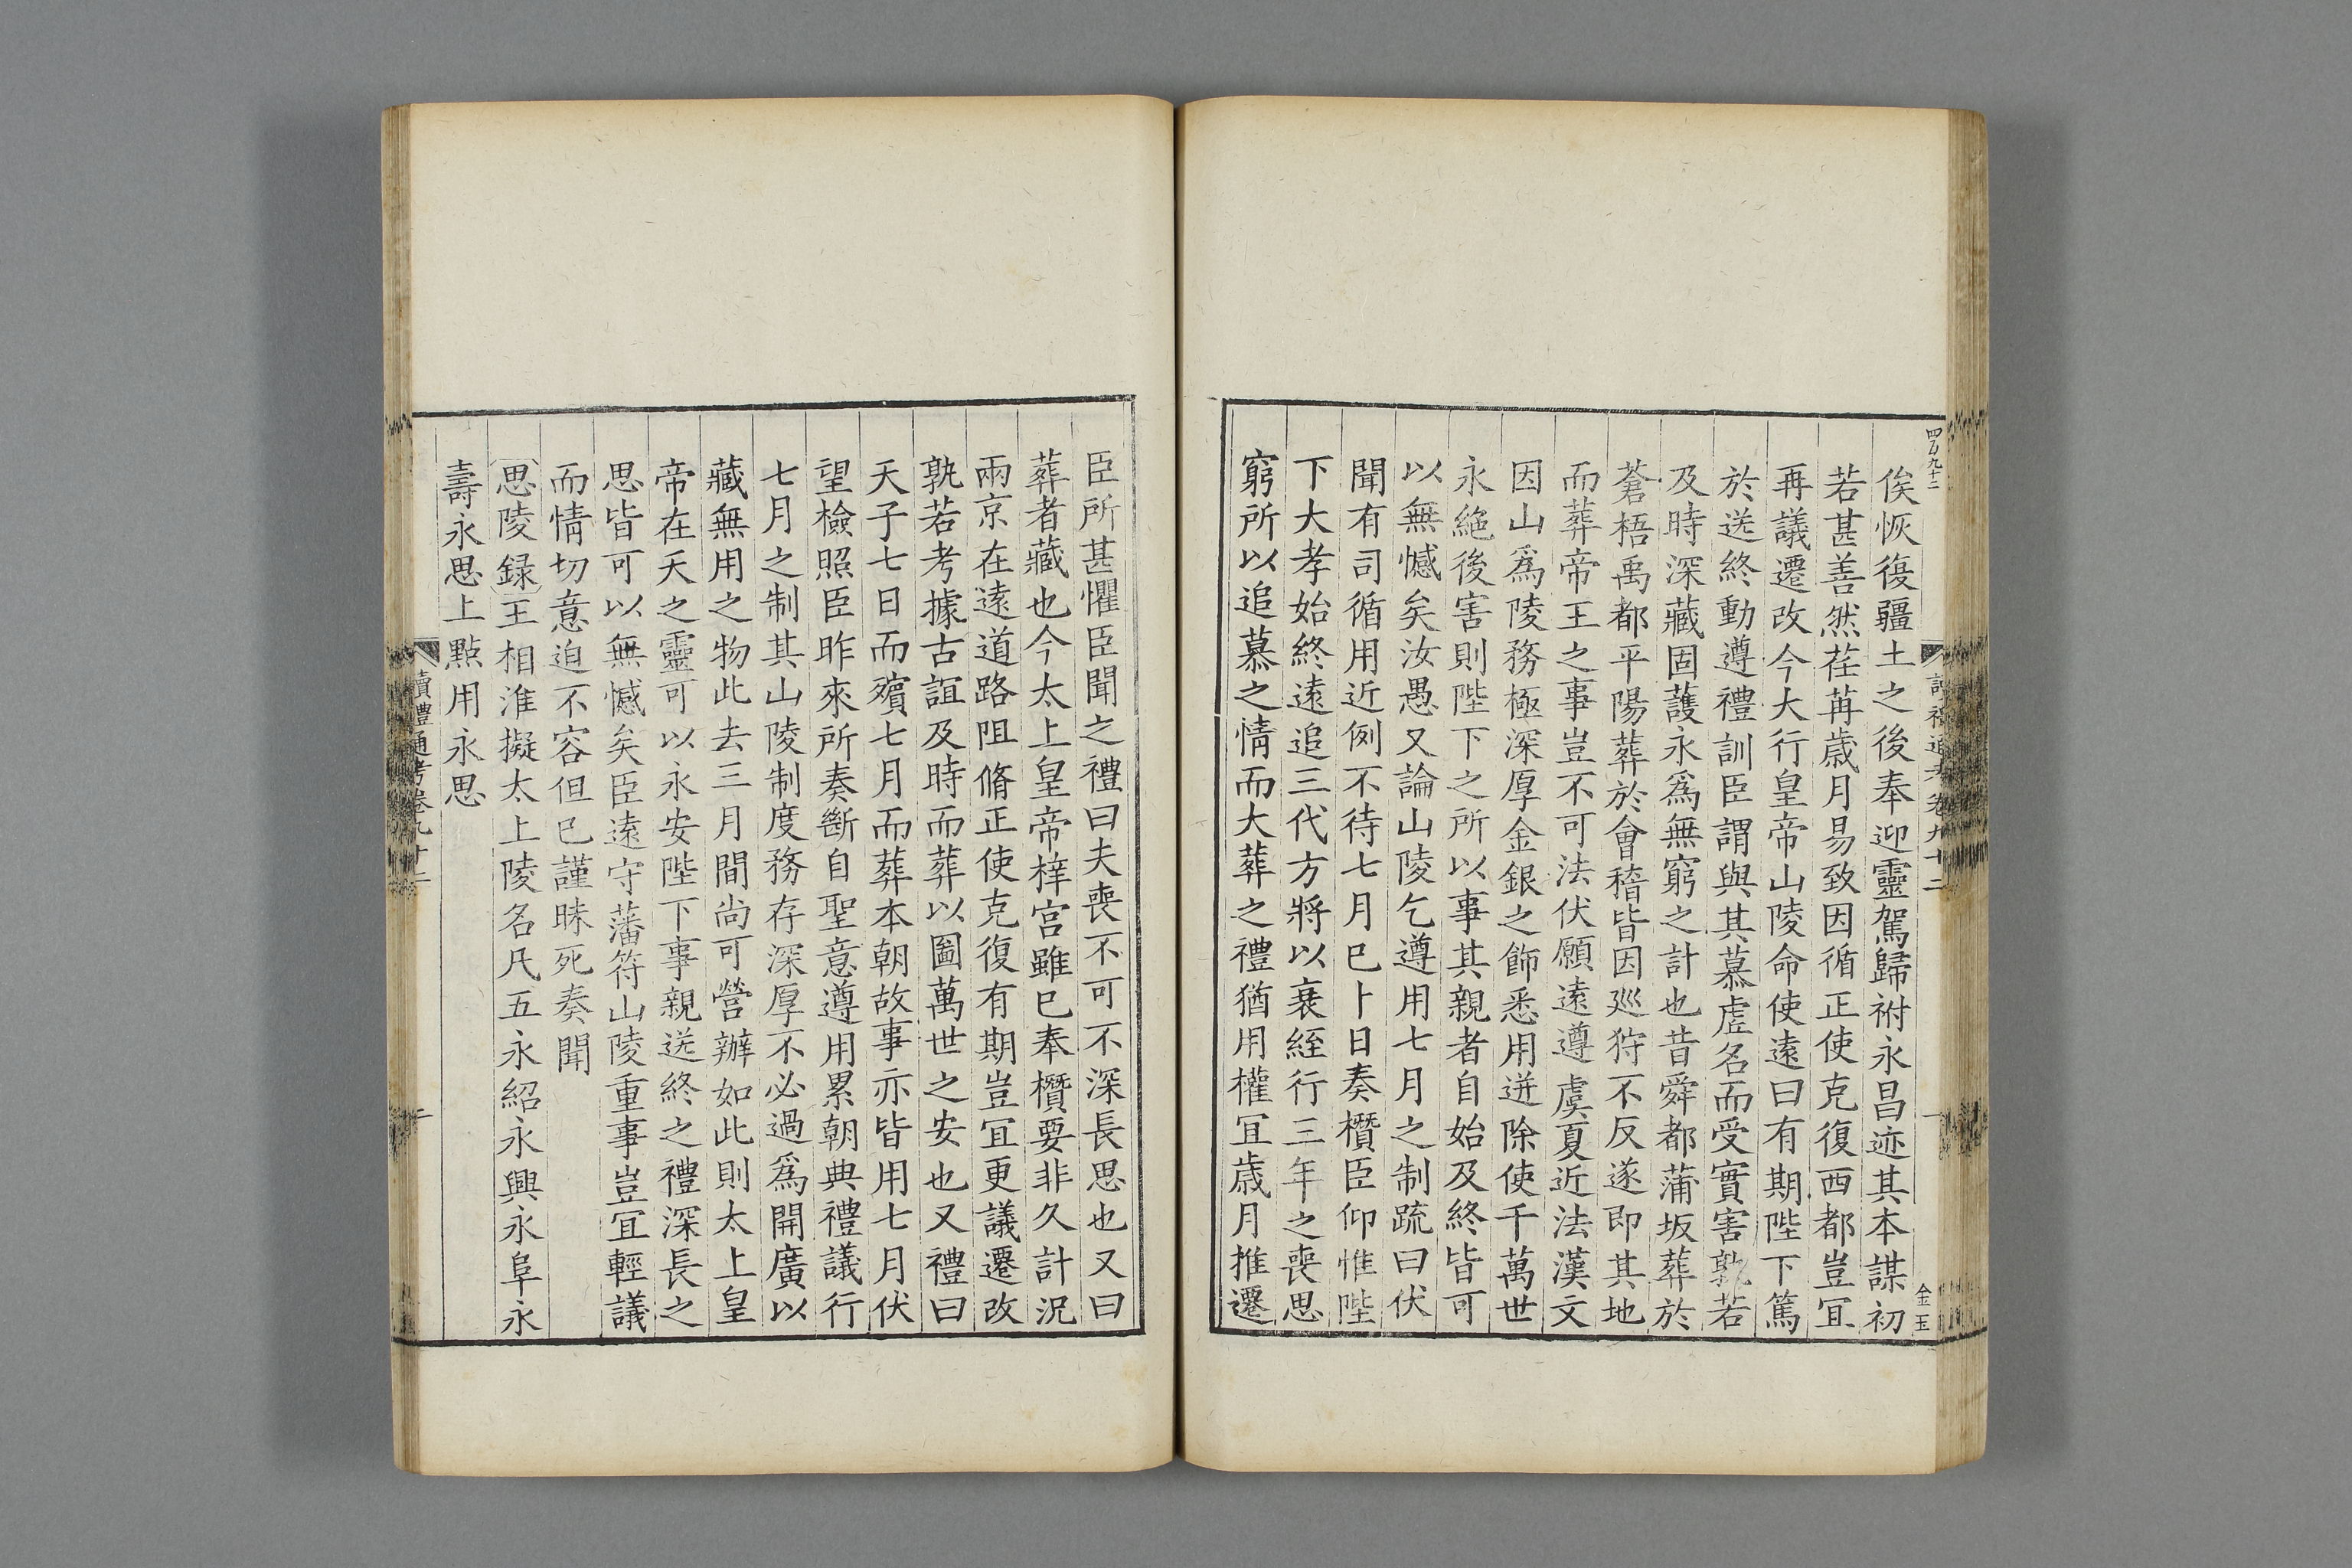 四百九十二
讀禮通考卷九十二
一
金玉
俟恢復疆土之後奉迎靈駕歸祔永昌迹其本謀初
若甚善然荏苒歲月易致因循正使克復西都豈冝
再議遷改今大行皇帝山陵命使遠曰有期陛下篤
於送終動遵禮訓臣謂與其慕虛名而受實害孰若
及時深藏固護永爲無窮之計也昔舜都蒲坂葬於
蒼梧禹都平陽葬於會稽皆因廵狩不反遂即其地
而葬帝王之事豈不可法伏願遠遵虞夏近法漢文
因山爲陵務極深厚金銀之飾悉用迸除使千萬世
永絶後害則陛下之所以事其親者自始及終皆可
以無憾矣汝愚又論山陵乞遵用七月之制疏曰伏
聞有司循用近例不待七月已卜日奏欑臣仰惟陛
下大孝始終遠追三代方將以衰絰行三年之喪思
窮所以追慕之情而大葬之禮猶用權冝歲月推遷
臣所甚懼臣聞之禮曰夫喪不可不深長思也又曰
葬者藏也今太上皇帝梓宫雖已奉欑要非久計況
兩京在遠道路阻脩正使克復有期豈冝更議遷改
孰若考據古誼及時而葬以圖萬世之安也又禮曰
天子七日而殯七月而葬本朝故事亦皆用七月伏
望檢照臣昨來所奏斷自聖意遵用累朝典禮議行
七月之制其山陵制度務存深厚不必過爲開廣以
藏無用之物此去三月間尚可營辦如此則太上皇
帝在天之靈可以永安陛下事親送終之禮深長之
思皆可以無憾矣臣遠守藩符山陵重事豈冝輕議
而情切意迫不容但已謹昧死奏聞
思陵録王相淮擬太上陵名凡五永紹永興永阜永
壽永思上點用永思
續禮通考卷九十二
二